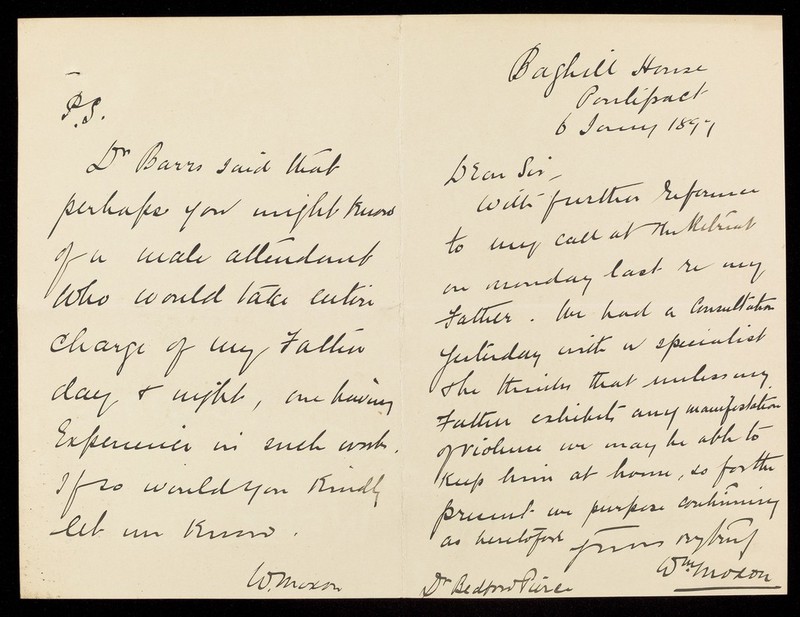 Baghill House
Pontefract
6 Jany 1897
Dear Sir -
With further reference
to my call at the Retreat
on monday last re my
Father. We had a Consultation
yesterday with a specialist
& he thinks that unless my
Father exhibits any manifestation
of violence we may be able to
keep him at home, so for the
present we purpose continuing
as heretofore
yours very truly
Wm Moxon
Dr Bedford Pierce
P.S.
Dr Barrs said that
perhaps you might know
of a male attendant
who would take entire
charge of my Father
day & night, one having
Experience in such work.
If so would you kindly
let me know.
W. Moxon